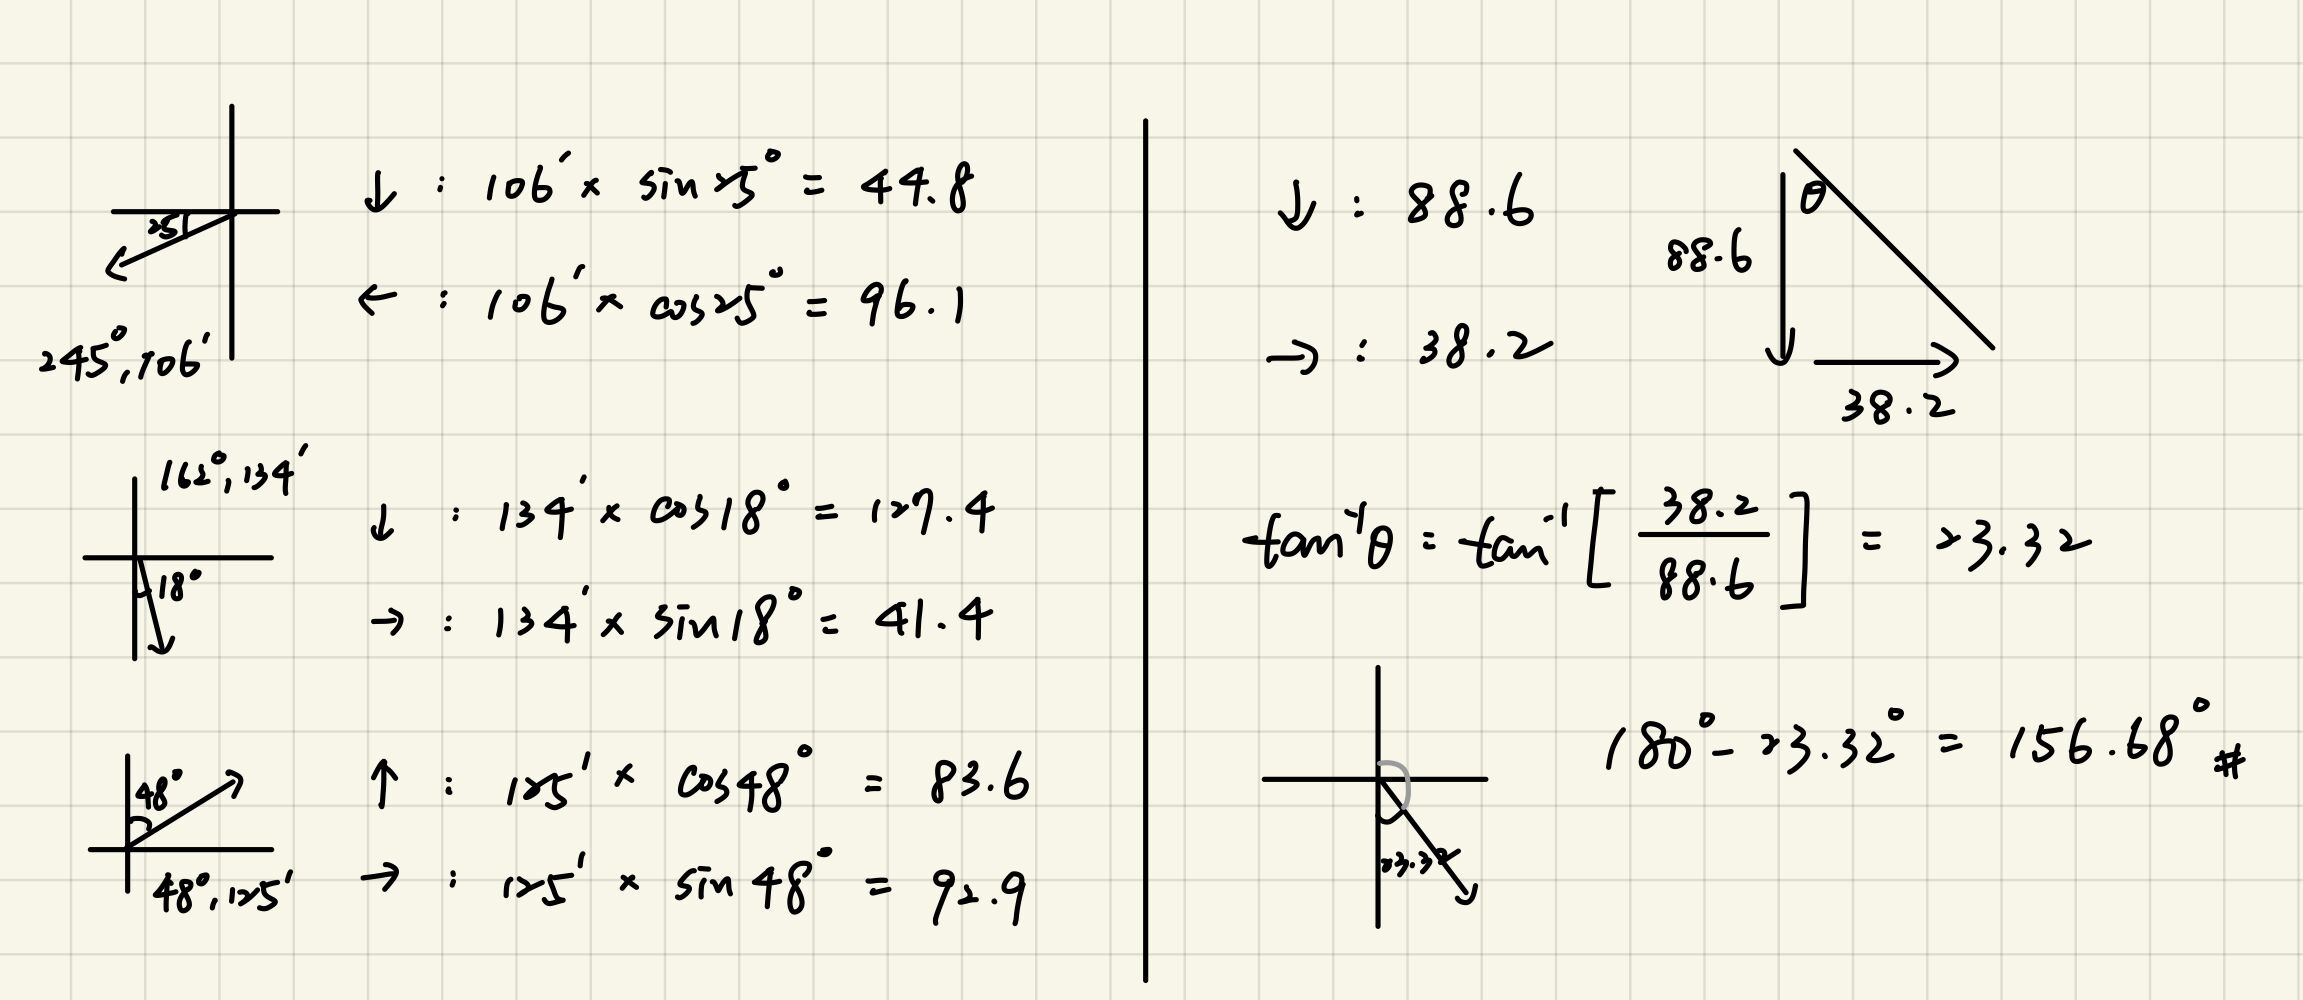 25
245°, 106'
↓ : 106' × sin 25° = 44.8
← : 106' × cos 25° = 96.1
162°, 134'
18°
↓ : 134' × cos 18° = 127.4
→ : 134' × sin 18° = 41.4
48°
48°, 125'
↑ : 125' × cos 48° = 83.6
→ : 125' × sin 48° = 92.9
↓ : 88.6
→ : 38.2
θ
88.6
38.2
tan⁻¹θ = tan⁻¹ [ 38.2 / 88.6 ] = 23.32
23.32
180° - 23.32° = 156.68° #